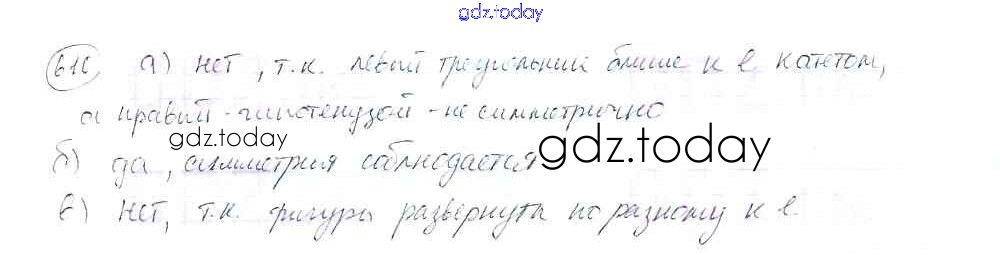 gdz.today
616 а) нет, т.к. левый треугольник ближе к l катетом,
а правый - гипотенузой - не симметрично
gdz.today
б) да, симметрия соблюдается
gdz.today
в) нет, т.к. фигуры развернуты по разному к l.